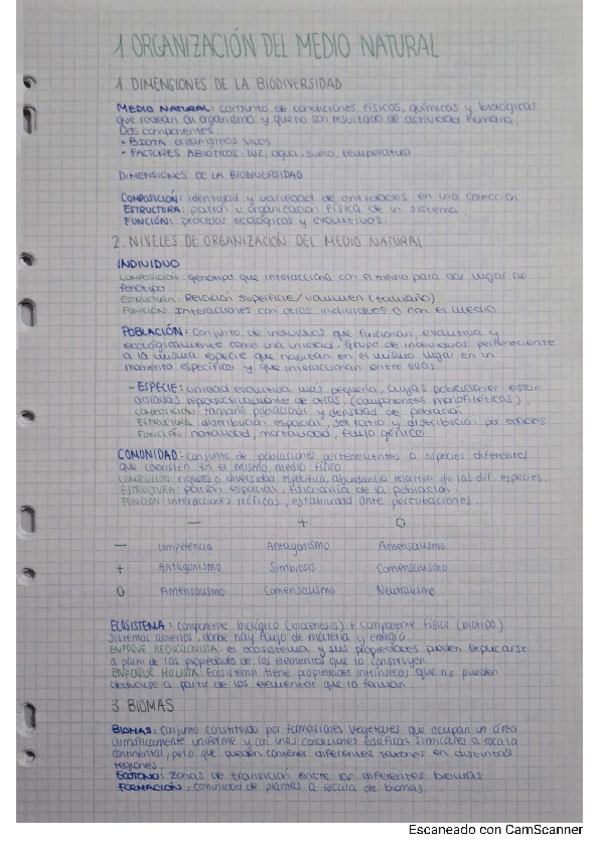 1. ORGANIZACIÓN DEL MEDIO NATURAL
1. DIMENSIONES DE LA BIODIVERSIDAD
MEDIO NATURAL: conjunto de condiciones físicas, químicas y biológicas
que rodean al organismo y que no son resultado de actividad humana.
Dos componentes:
• BIOTA: organismos vivos
• FACTORES ABIÓTICOS: luz, agua, suelo, temperatura
DIMENSIONES DE LA BIODIVERSIDAD
COMPOSICIÓN: identidad y variedad de entidades en una colección
ESTRUCTURA: patrón u organización física de un sistema
FUNCIÓN: procesos ecológicos y evolutivos.
2. NIVELES DE ORGANIZACIÓN DEL MEDIO NATURAL
INDIVIDUO
COMPOSICIÓN: genotipo que interacciona con el medio para dar lugar de
fenotipo
ESTRUCTURA: Relación superficie/volumen (tamaño)
FUNCIÓN: Interacciones con otros individuos o con el medio.
POBLACIÓN: conjunto de individuos que funcionan, evolutiva y
ecológicamente como una unidad. Grupo de individuos perteneciente
a la misma especie que habitan en el mismo lugar en un
momento específico y que interaccionan entre ellos.
- ESPECIE: unidad evolutiva más pequeña, cuyas poblaciones están
aisladas reproductivamente de otras. (componentes monofiléticos).
COMPOSICIÓN: tamaño poblacional y densidad de población
ESTRUCTURA: distribución espacial, sex ratio y distribución por edades
FUNCIÓN: natalidad, mortalidad, flujo génico.
COMUNIDAD: conjunto de poblaciones pertenecientes a especies diferentes
que coexisten en el mismo medio físico
COMPOSICIÓN: riqueza o diversidad específica, abundancia relativa de las dif. especies.
ESTRUCTURA: patrón espacial, fisionomía de la población
FUNCIÓN: interacciones tróficas, estabilidad ante perturbaciones.
— + O
— Competencia Antagonismo Amensalismo
+ Antagonismo Simbiosis Comensalismo
O Amensalismo Comensalismo Neutralismo
ECOSISTEMA: componente biológico (biocenosis) + componente físico (biotipo)
Sistemas abiertos, donde hay flujo de materia y energía
ENFOQUE REDUCCIONISTA: el ecosistema y sus propiedades pueden explicarse
a partir de las propiedades de los elementos que lo construyen
ENFOQUE HOLISTA: Ecosistema tiene propiedades intrínsecas que no pueden
deducirse a partir de los elementos que lo forman
3. BIOMAS
BIOMAS: Conjunto constituido por formaciones vegetales que ocupan un área
climáticamente uniforme y con unas condiciones edáficas similares a escala
continental, pero que pueden contener diferentes taxones en distintas
regiones.
ECOTONO: zonas de transición entre los diferentes biomas
FORMACIÓN: comunidad de plantas a escala de biomas.
Escaneado con CamScanner